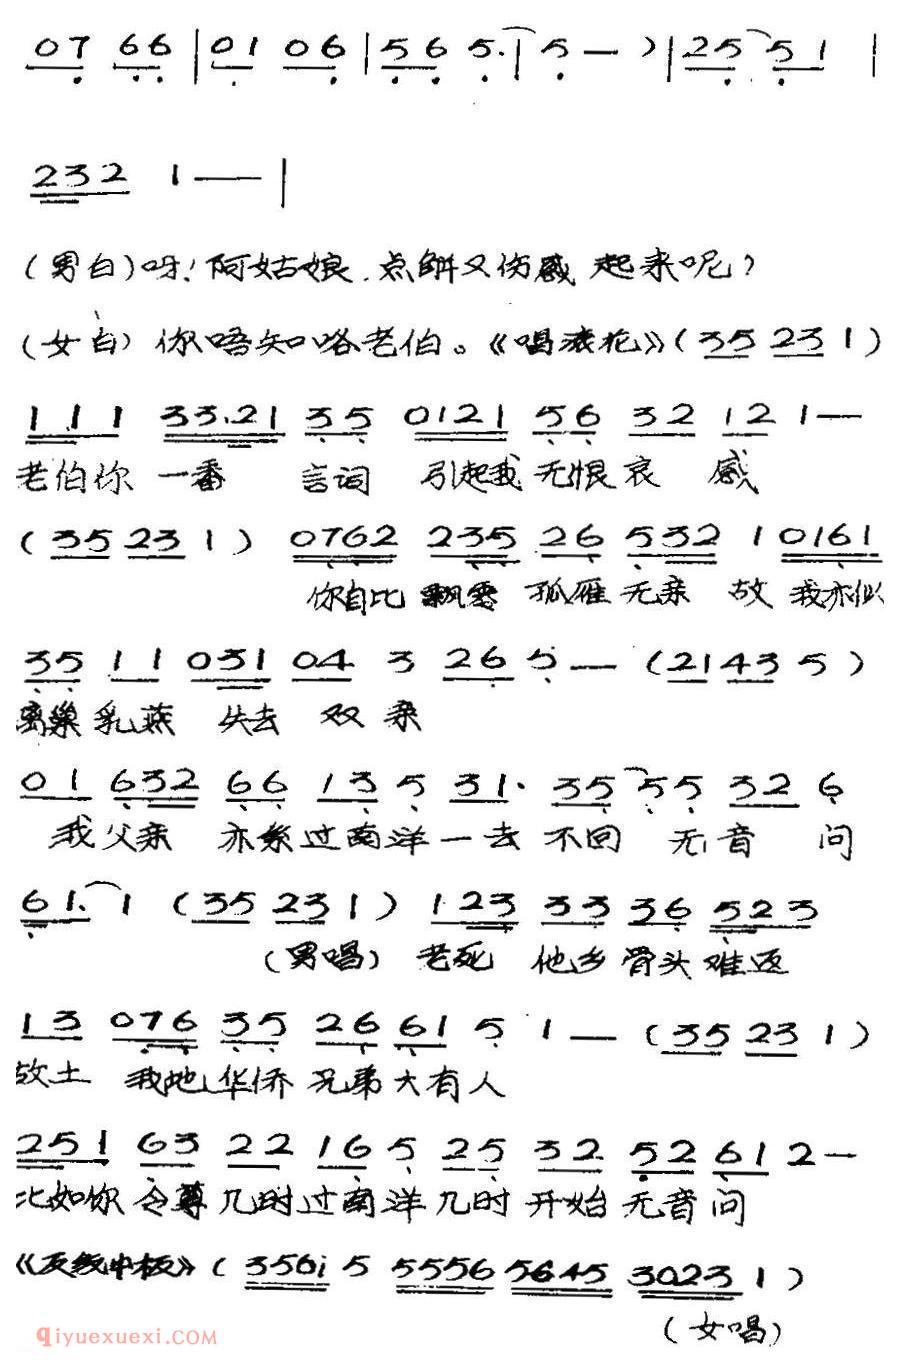 07 66 | 01 06 | 56 5. | 5 — ) | 25 51 |
232 1 — |
(男白)呀!阿姑娘,点解又伤感起来呢?
(女白)你唔知咯老伯。《唱滚花》(35 23 1)
111 33.21 35 0121 56 32 12 1—
老伯你 一番 言词 引起我 无恨哀 感
(35 23 1) 0762 235 26 532 1 0161
你自比 飘零 孤雁 无亲 故 我亦似
35 11 031 04 3 26 5 — (2143 5)
离巢 乳燕 失去 双 亲
01 632 66 13 5 31. 35 55 32 6
我父亲 亦系过南洋一去 不回 无音 问
61. 1 (35 23 1) 1.23 33 36 523
(男唱) 老死 他乡 骨头 难返
13 076 35 26 61 5 1 — (35 23 1)
故土 我地华侨 兄弟大有人
251 63 22 16 5 25 32 52 61 2—
比如你 令尊 几时过南洋几时 开始 无音问
《反线中板》(356i 5 5556 5645 3023 1)
(女唱)
qiyuexuexi.com